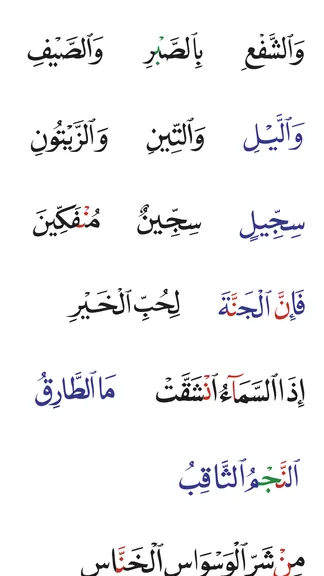 وَالشَّفْعِ بِالصَّبْرِ وَالصَّيْفِ
وَالَّيْلِ وَالتِّينِ وَالزَّيْتُونِ
سِجِّيلٍ سِجِّينٌ مُنْفَكِّينَ
فَإِنَّ الْجَنَّةَ لِحُبِّ الْخَيْرِ
إِذَا السَّمَآءُ انْشَقَّتْ مَا الطَّارِقُ
النَّجْمُ الثَّاقِبُ
مِنْ شَرِّ الْوَسْوَاسِ الْخَنَّاسِ